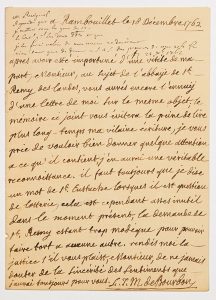 a Rambouillet le 16 Décembre 1762
apres avoir eté importuné d'une visite de ma
part, Monsieur, au sujet de l'abbaye de St
Remy des Landes, vous aurés encore l'ennui
d'une lettre de moi sur le meme objet, le
memoire ci joint vous evitera la peine de lire
plus long-temps ma vilaine ecriture, je vous
prie de vouloir bien donner quelque attention
a ce qu'il contient, j'en aurai une veritable
reconnoissance. il faut toujours que je dise
un mot de St Eustache lorsqu'il est question
de lotterie, cela est cependant assés inutil
dans le moment present, la demande de
St Remy estant trop modeque pour pouvoir
faire tort a aucune autre. rendés moi la
justice s'il vous plaist, Monsieur, de ne jamais
douter de la sincerité des sentiments que
j'aurai toujours pour vous. L. J. M. de Bourbon